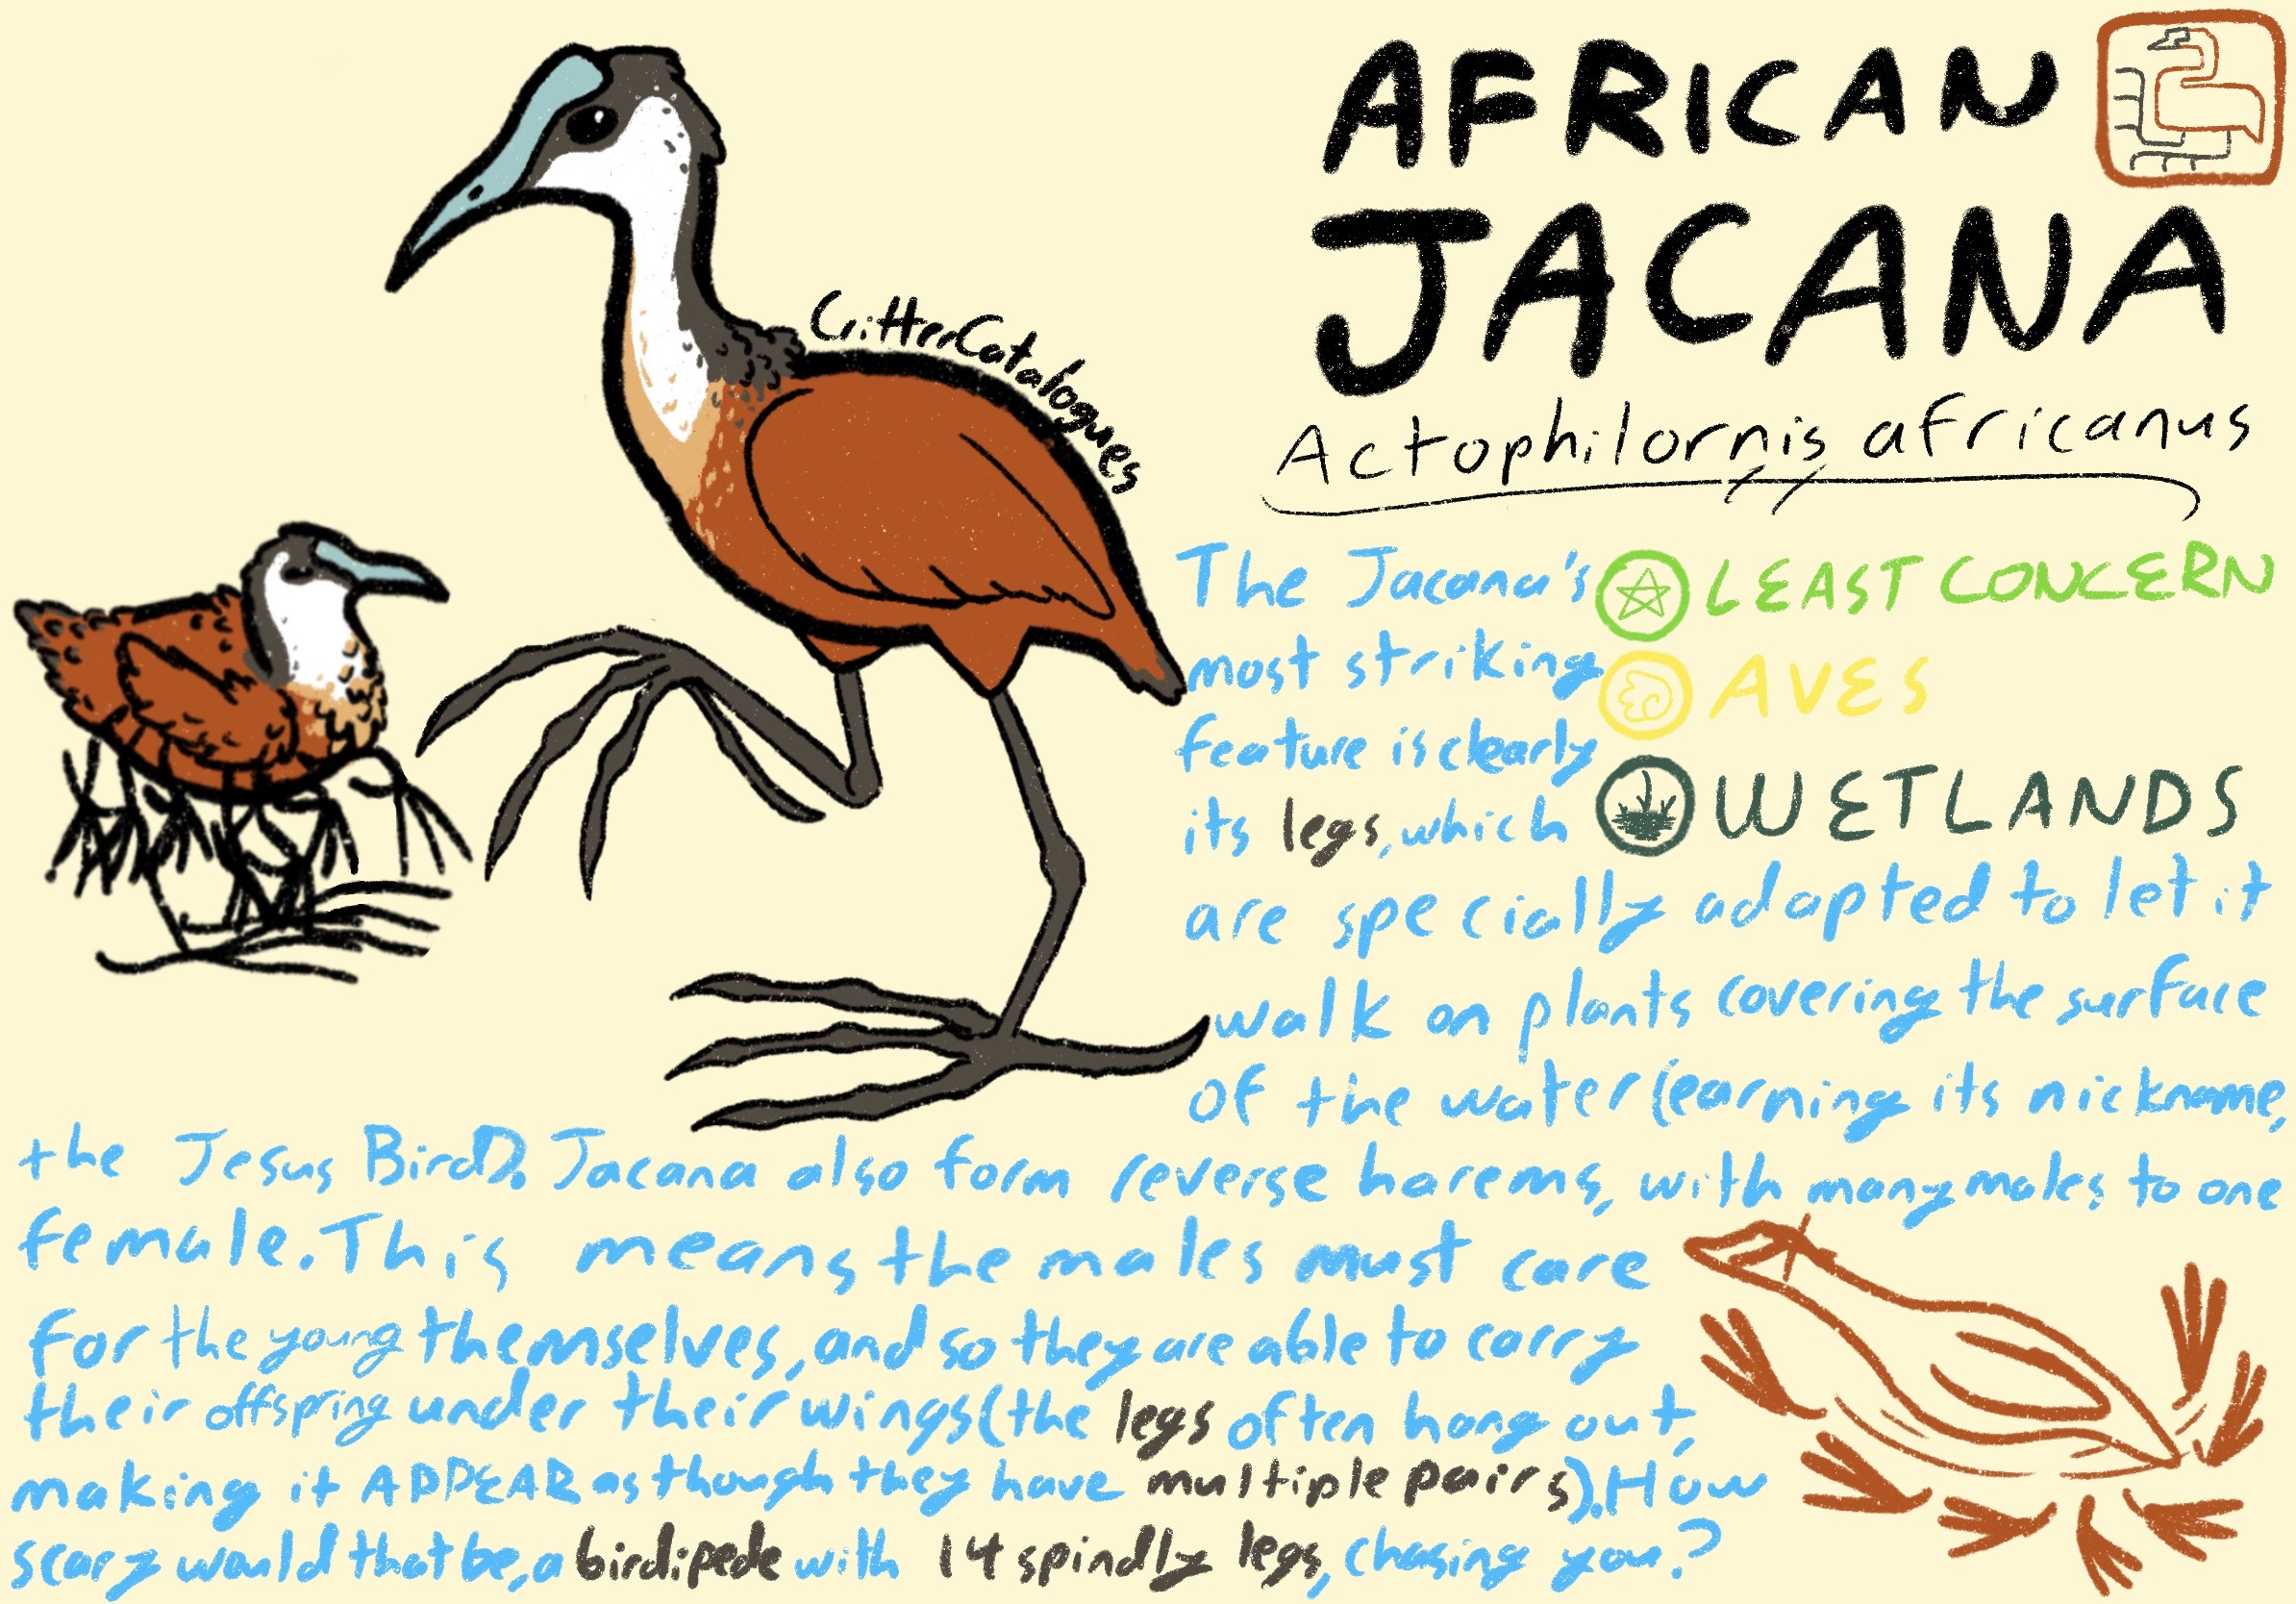 AFRICAN
JACANA
Actophilornis africanus
CritterCatalogues
LEAST CONCERN
AVES
WETLANDS
The Jacana's
most striking
feature is clearly
its legs, which
are specially adapted to let it
walk on plants covering the surface
of the water (earning its nickname,
the Jesus Bird). Jacana also form reverse harems, with many males to one
female. This means the males must care
for the young themselves, and so they are able to carry
their offspring under their wings (the legs often hang out,
making it APPEAR as though they have multiple pairs). How
scary would that be, a birdipede with 14 spindly legs, chasing you?